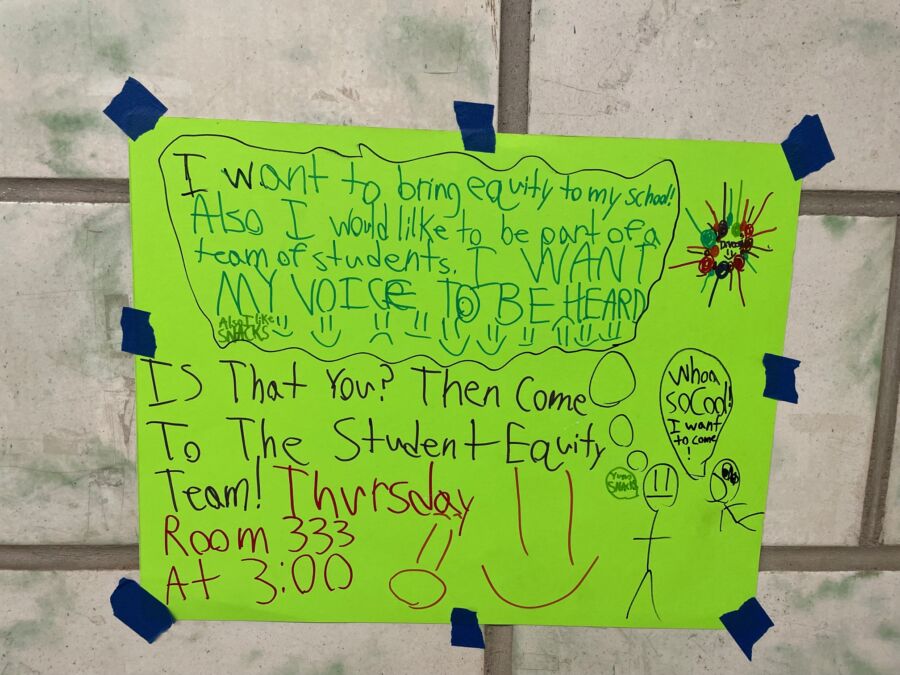 I want to bring equity to my school!
Also I would lilke to be part of a
team of students. I WANT
MY VOICE TO BE HEARD
Also I like
SNACKS
IS That You? Then Come
To The Student Equity
Team! Thursday
Room 333
At 3:00
Whoa
SoCool!
I want
to come
!
SNACKS